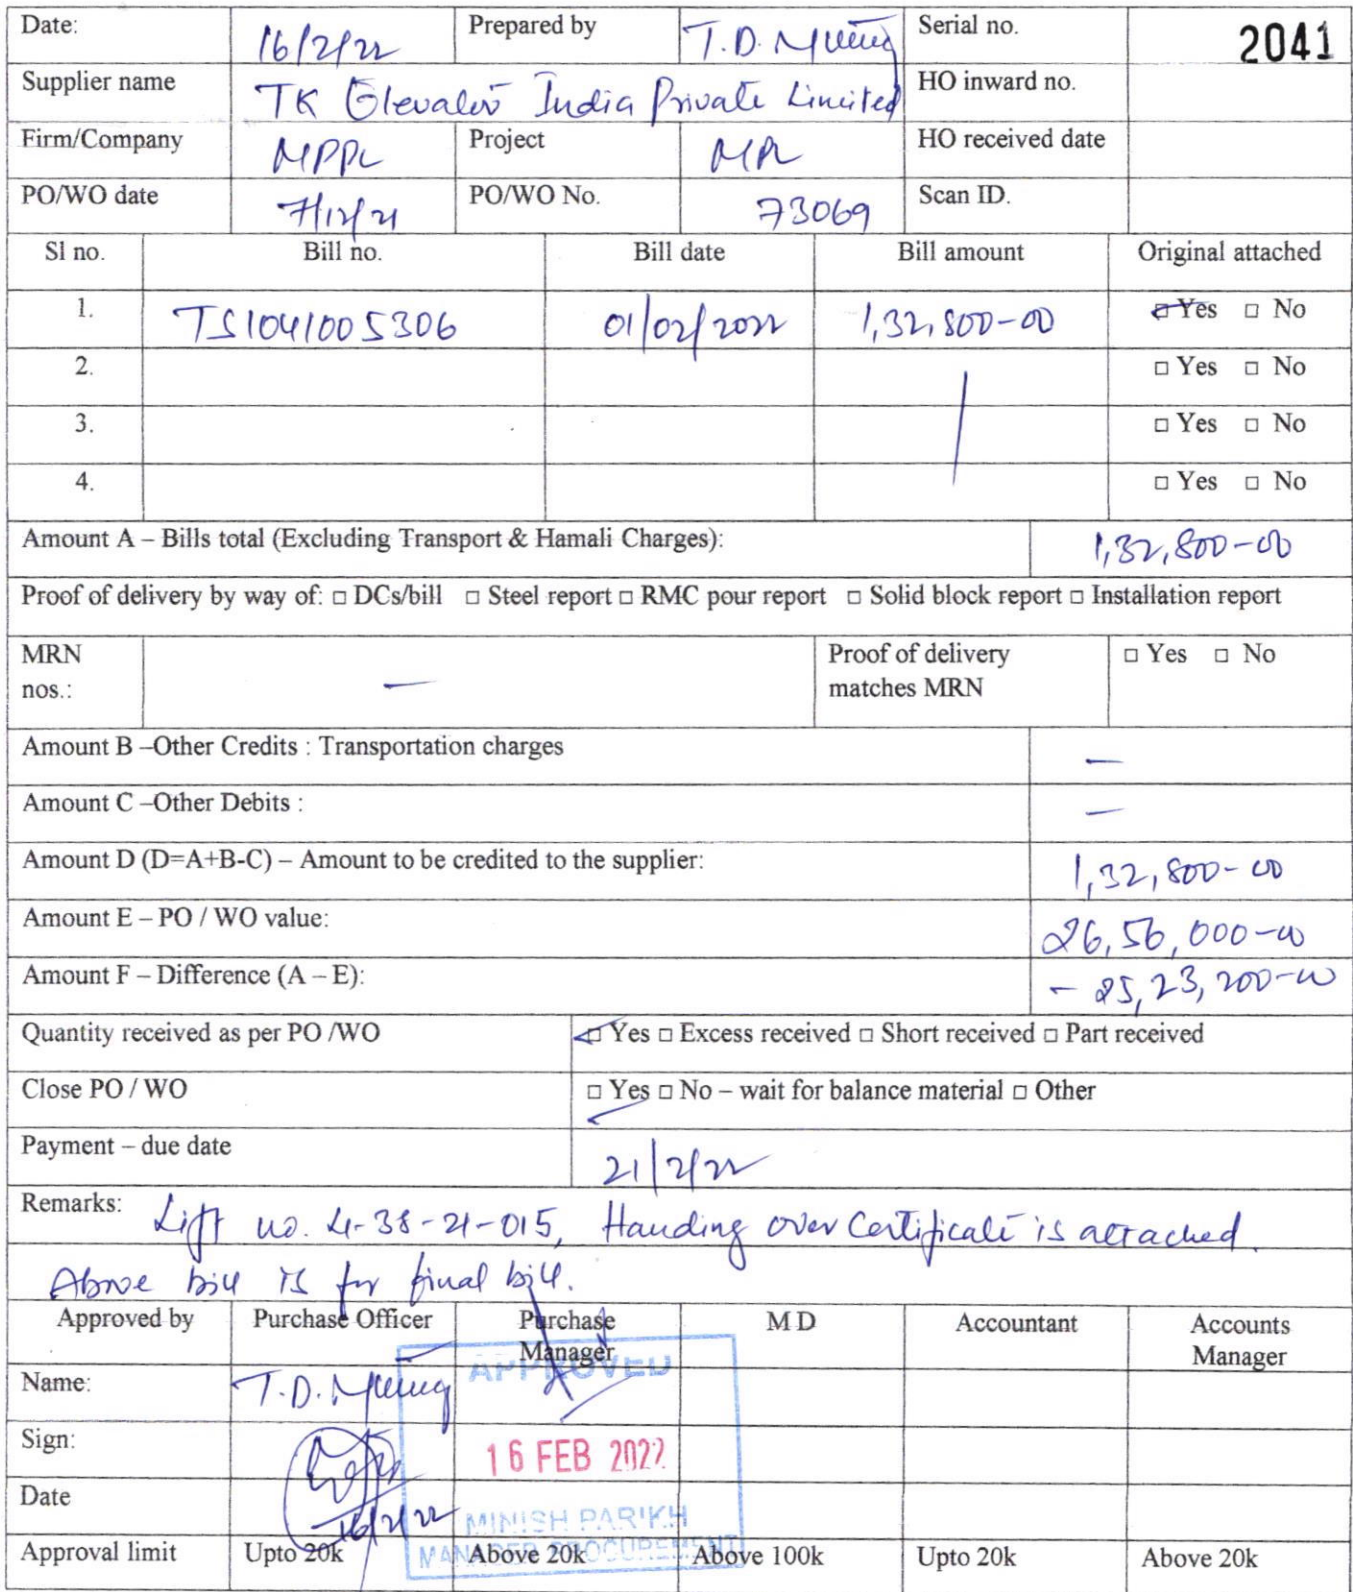 Date: 16/2/22 Prepared by T.D. Serial no. 2041
Supplier name TK Elevator India Private Limited HO inward no.
Firm/Company MPPL Project HO received date
PO/WO date 7/12/21 PO/WO No. 73069 Scan ID.
Sl no. Bill no. Bill date Bill amount Original attached
1. TS1041005306 01/02/2022 1,32,800-00 □ Yes □ No
2. □ Yes □ No
3. □ Yes □ No
4. □ Yes □ No
Amount A – Bills total (Excluding Transport & Hamali Charges): 1,32,800-00
Proof of delivery by way of: □ DCs/bill □ Steel report □ RMC pour report □ Solid block report □ Installation report
MRN nos.: — Proof of delivery matches MRN □ Yes □ No
Amount B –Other Credits : Transportation charges —
Amount C –Other Debits : —
Amount D (D=A+B-C) – Amount to be credited to the supplier: 1,32,800-00
Amount E – PO / WO value: 26,56,000-00
Amount F – Difference (A – E): - 25,23,200-00
Quantity received as per PO /WO □ Yes □ Excess received □ Short received □ Part received
Close PO / WO □ Yes □ No – wait for balance material □ Other
Payment – due date 21/2/22
Remarks: Lift no. 4-38-21-015, Handing over Certificate is attached.
Above bill is for final bill.
Approved by Purchase Officer Purchase Manager M D Accountant Accounts Manager
APPROVED
Name: T.D.
Sign: 16 FEB 2022
Date 16/2/22 MINISH PARIKH
MANAGER PROCUREMENT
Approval limit Upto 20k Above 20k Above 100k Upto 20k Above 20k